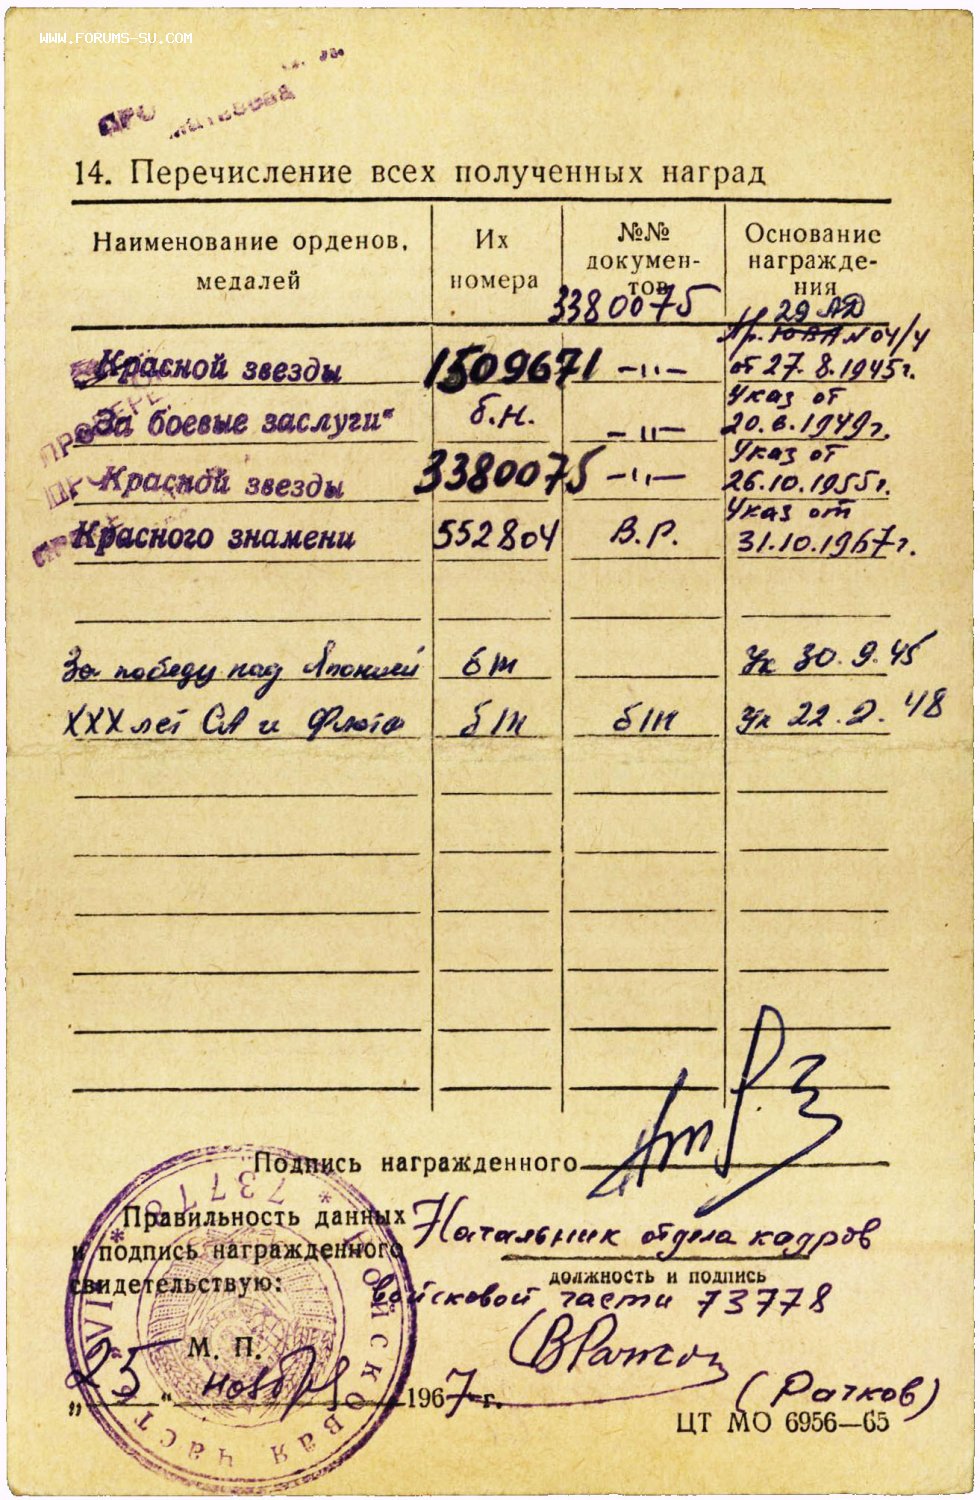 WWW.FORUMS-SU.COM
14. Перечисление всех полученных наград
Наименование орденов, медалей
Их номера
№№ документов
Основание награждения
3380075
29 АД
Пр. ЮВА N 04/4
Красной звезды 1509671 —"— от 27.8.1945г.
За боевые заслуги" б.н. —"— Указ от 20.6.1949г.
Красной звезды 3380075 —"— Указ от 26.10.1955г.
Красного знамени 552804 В.Р. Указ от 31.10.1967г.
За победу над Японией б/н Ук 30.9.45
XXX лет СА и Флота б/н б/н Ук 22.2.48
Подпись награжденного
Правильность данных
и подпись награжденного
свидетельствую:
Начальник отдела кадров
должность и подпись
войсковой части 73778
М. П.
„25“ ноября 1967 г.
(Рачков)
ЦТ МО 6956—65
* Войсковая часть * 73778